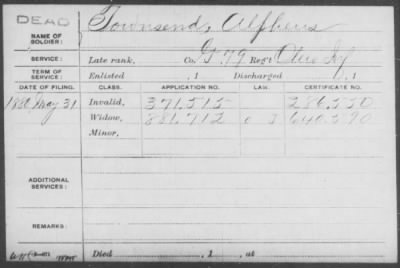 DEAD
NAME OF SOLDIER: Townsend, Alpheus
SERVICE: Late rank, Co. G. 79 Reg't Ohio Inf
TERM OF SERVICE: Enlisted , 1 Discharged , 1
DATE OF FILING. CLASS. APPLICATION NO. LAW. CERTIFICATE NO.
1880 May 31 Invalid, 371,515 286,550
Widow, 881,712 640,590
Minor,
ADDITIONAL SERVICES:
REMARKS:
Died , 1 , at